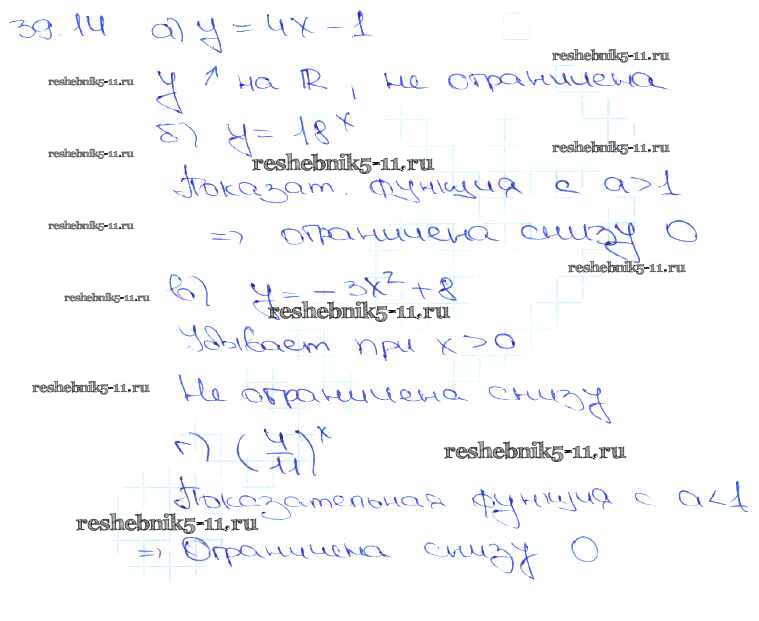 39.14 а) y = 4x - 1
reshebnik5-11.ru
reshebnik5-11.ru
y ↑ на ℝ, не ограничена
б) y = 18^x
reshebnik5-11.ru
reshebnik5-11.ru
reshebnik5-11.ru
Показат. функция с a>1
reshebnik5-11.ru
=> ограничена снизу 0
reshebnik5-11.ru
в) y = -3x² + 8
reshebnik5-11.ru
reshebnik5-11.ru
Убывает при x>0
reshebnik5-11.ru
Не ограничена снизу
г) (4/11)^x
reshebnik5-11.ru
Показательная функция с a<1
reshebnik5-11.ru
=> Ограничена снизу 0